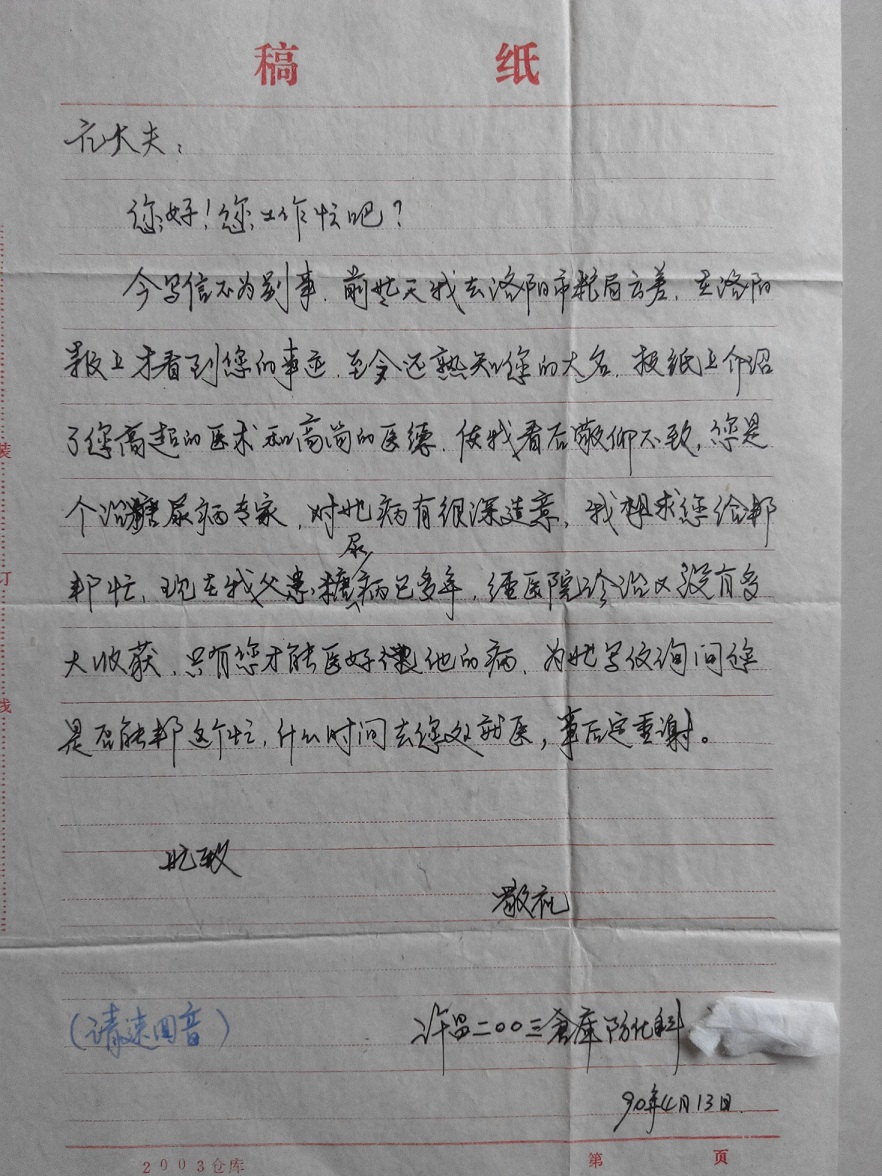 稿 纸
大夫：
您好！您工作忙吧？
今写信不为别事，前些天我去洛阳市粮局出差，在洛阳
报上才看到您的事迹，至今还熟知您的大名，报纸上介绍
了您高超的医术和高尚的医德，使我看后敬仰不致，您是
个治糖尿病专家，对此病有很深造意，我想求您给帮
帮忙，现在我父患糖尿病已多年，经医院诊治又没有多
大收获，只有您才能医好他的病，为此写信询问您
是否能帮这个忙，什么时间去您处就医，事后定重谢。
此致
敬礼
（请速回音）
许昌二〇〇三仓库防化科
90年4月13日
装
订
线
2003仓库
第 页